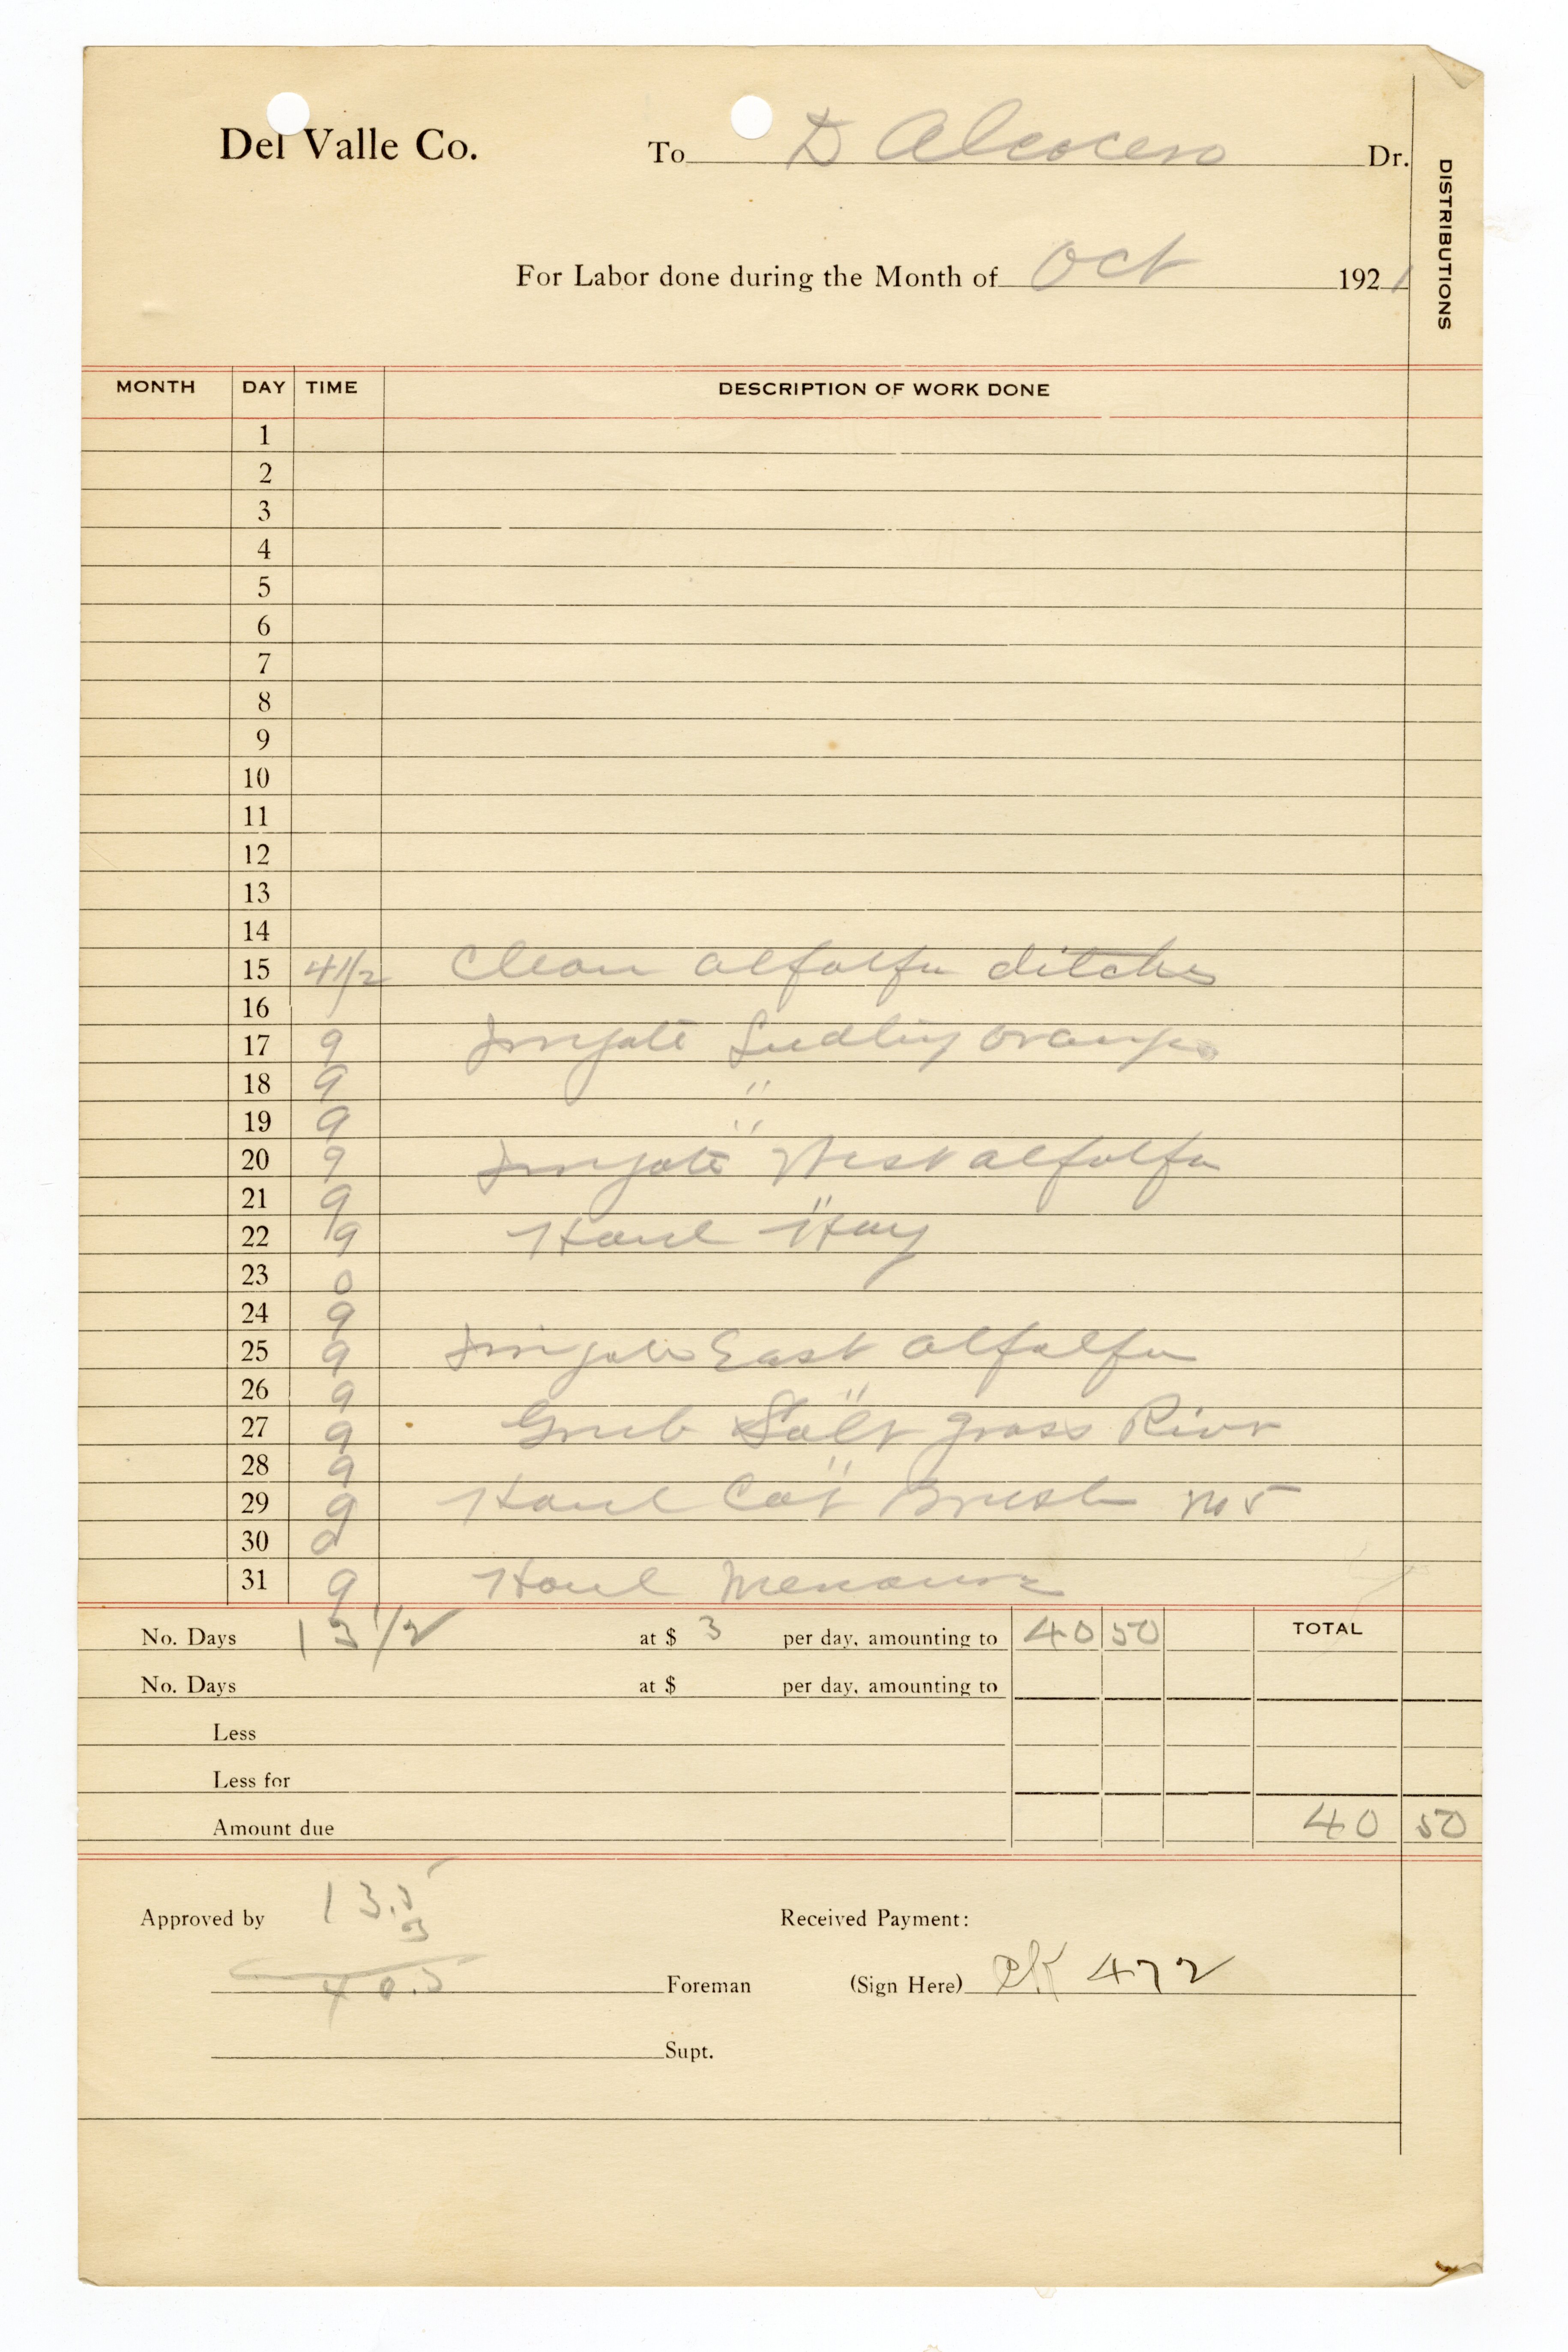 Del Valle Co. To D Alcocero Dr.
DISTRIBUTIONS
For Labor done during the Month of Oct 1921
MONTH DAY TIME DESCRIPTION OF WORK DONE
1
2
3
4
5
6
7
8
9
10
11
12
13
14
15 4 1/2 Clean alfalfa ditches
16
17 9 Irrigate Seedling oranges
18 9 "
19 9 "
20 9 Irrigate West alfalfa
21 9 "
22 9 Haul Hay
23 0
24 9
25 9 Irrigate East alfalfa
26 9 "
27 9 Grub Salt grass River
28 9 "
29 9 Haul Brush No 5
30 0
31 9 Haul Menanure
No. Days 13 1/2 at $ 3 per day, amounting to 40 50 TOTAL
No. Days at $ per day, amounting to
Less
Less for
Amount due 40 50
13.5
Approved by Received Payment:
3
40.5 Foreman (Sign Here) ck 472
Supt.